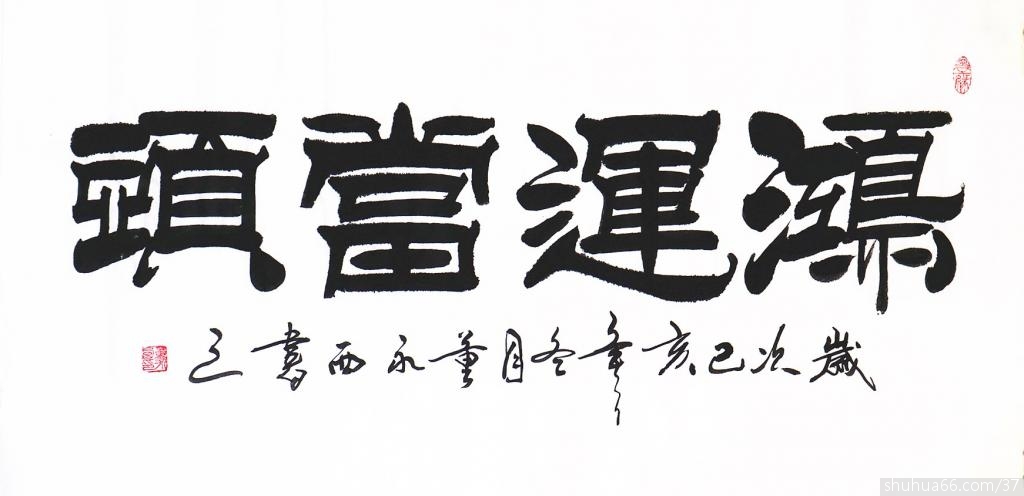 鴻運當頭
歲次己亥年冬月董永西書之
shuhua66.com/37